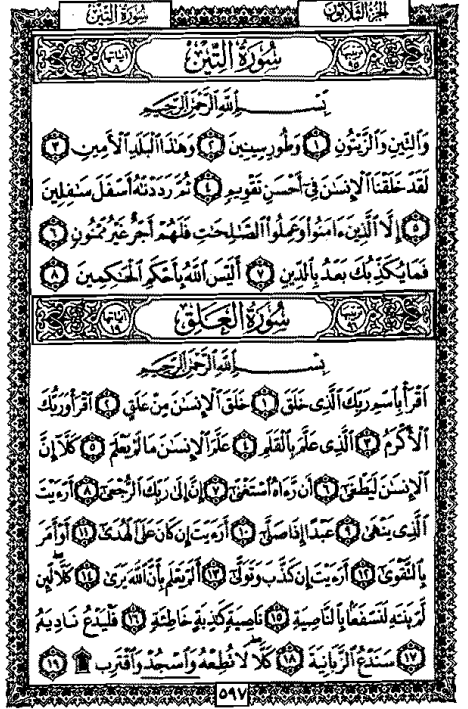 الجُزْءُ الثَّلَاثُونَ سُورَةُ التِّينِ
ترتيبها ٩٥ سُورَةُ التِّينِ آياتها ٨
بِسْمِ ٱللَّهِ ٱلرَّحْمَٰنِ ٱلرَّحِيمِ
وَٱلتِّينِ وَٱلزَّيْتُونِ ١ وَطُورِ سِينِينَ ٢ وَهَٰذَا ٱلْبَلَدِ ٱلْأَمِينِ ٣
لَقَدْ خَلَقْنَا ٱلْإِنسَٰنَ فِىٓ أَحْسَنِ تَقْوِيمٍ ٤ ثُمَّ رَدَدْنَٰهُ أَسْفَلَ سَٰفِلِينَ
٥ إِلَّا ٱلَّذِينَ ءَامَنُوا۟ وَعَمِلُوا۟ ٱلصَّٰلِحَٰتِ فَلَهُمْ أَجْرٌ غَيْرُ مَمْنُونٍ ٦
فَمَا يُكَذِّبُكَ بَعْدُ بِٱلدِّينِ ٧ أَلَيْسَ ٱللَّهُ بِأَحْكَمِ ٱلْحَٰكِمِينَ ٨
ترتيبها ٩٦ سُورَةُ العَلَقِ آياتها ١٩
بِسْمِ ٱللَّهِ ٱلرَّحْمَٰنِ ٱلرَّحِيمِ
ٱقْرَأْ بِٱسْمِ رَبِّكَ ٱلَّذِى خَلَقَ ١ خَلَقَ ٱلْإِنسَٰنَ مِنْ عَلَقٍ ٢ ٱقْرَأْ وَرَبُّكَ
ٱلْأَكْرَمُ ٣ ٱلَّذِى عَلَّمَ بِٱلْقَلَمِ ٤ عَلَّمَ ٱلْإِنسَٰنَ مَا لَمْ يَعْلَمْ ٥ كَلَّآ إِنَّ
ٱلْإِنسَٰنَ لَيَطْغَىٰٓ ٦ أَن رَّءَاهُ ٱسْتَغْنَىٰٓ ٧ إِنَّ إِلَىٰ رَبِّكَ ٱلرُّجْعَىٰٓ ٨ أَرَءَيْتَ
ٱلَّذِى يَنْهَىٰ ٩ عَبْدًا إِذَا صَلَّىٰٓ ١٠ أَرَءَيْتَ إِن كَانَ عَلَى ٱلْهُدَىٰٓ ١١ أَوْ أَمَرَ
بِٱلتَّقْوَىٰٓ ١٢ أَرَءَيْتَ إِن كَذَّبَ وَتَوَلَّىٰٓ ١٣ أَلَمْ يَعْلَم بِأَنَّ ٱللَّهَ يَرَىٰ ١٤ كَلَّا لَئِن
لَّمْ يَنتَهِ لَنَسْفَعًۢا بِٱلنَّاصِيَةِ ١٥ نَاصِيَةٍ كَٰذِبَةٍ خَاطِئَةٍ ١٦ فَلْيَدْعُ نَادِيَهُۥ
١٧ سَنَدْعُ ٱلزَّبَانِيَةَ ١٨ كَلَّا لَا تُطِعْهُ وَٱسْجُدْ وَٱقْتَرِب ۩ ١٩
٥٩٧